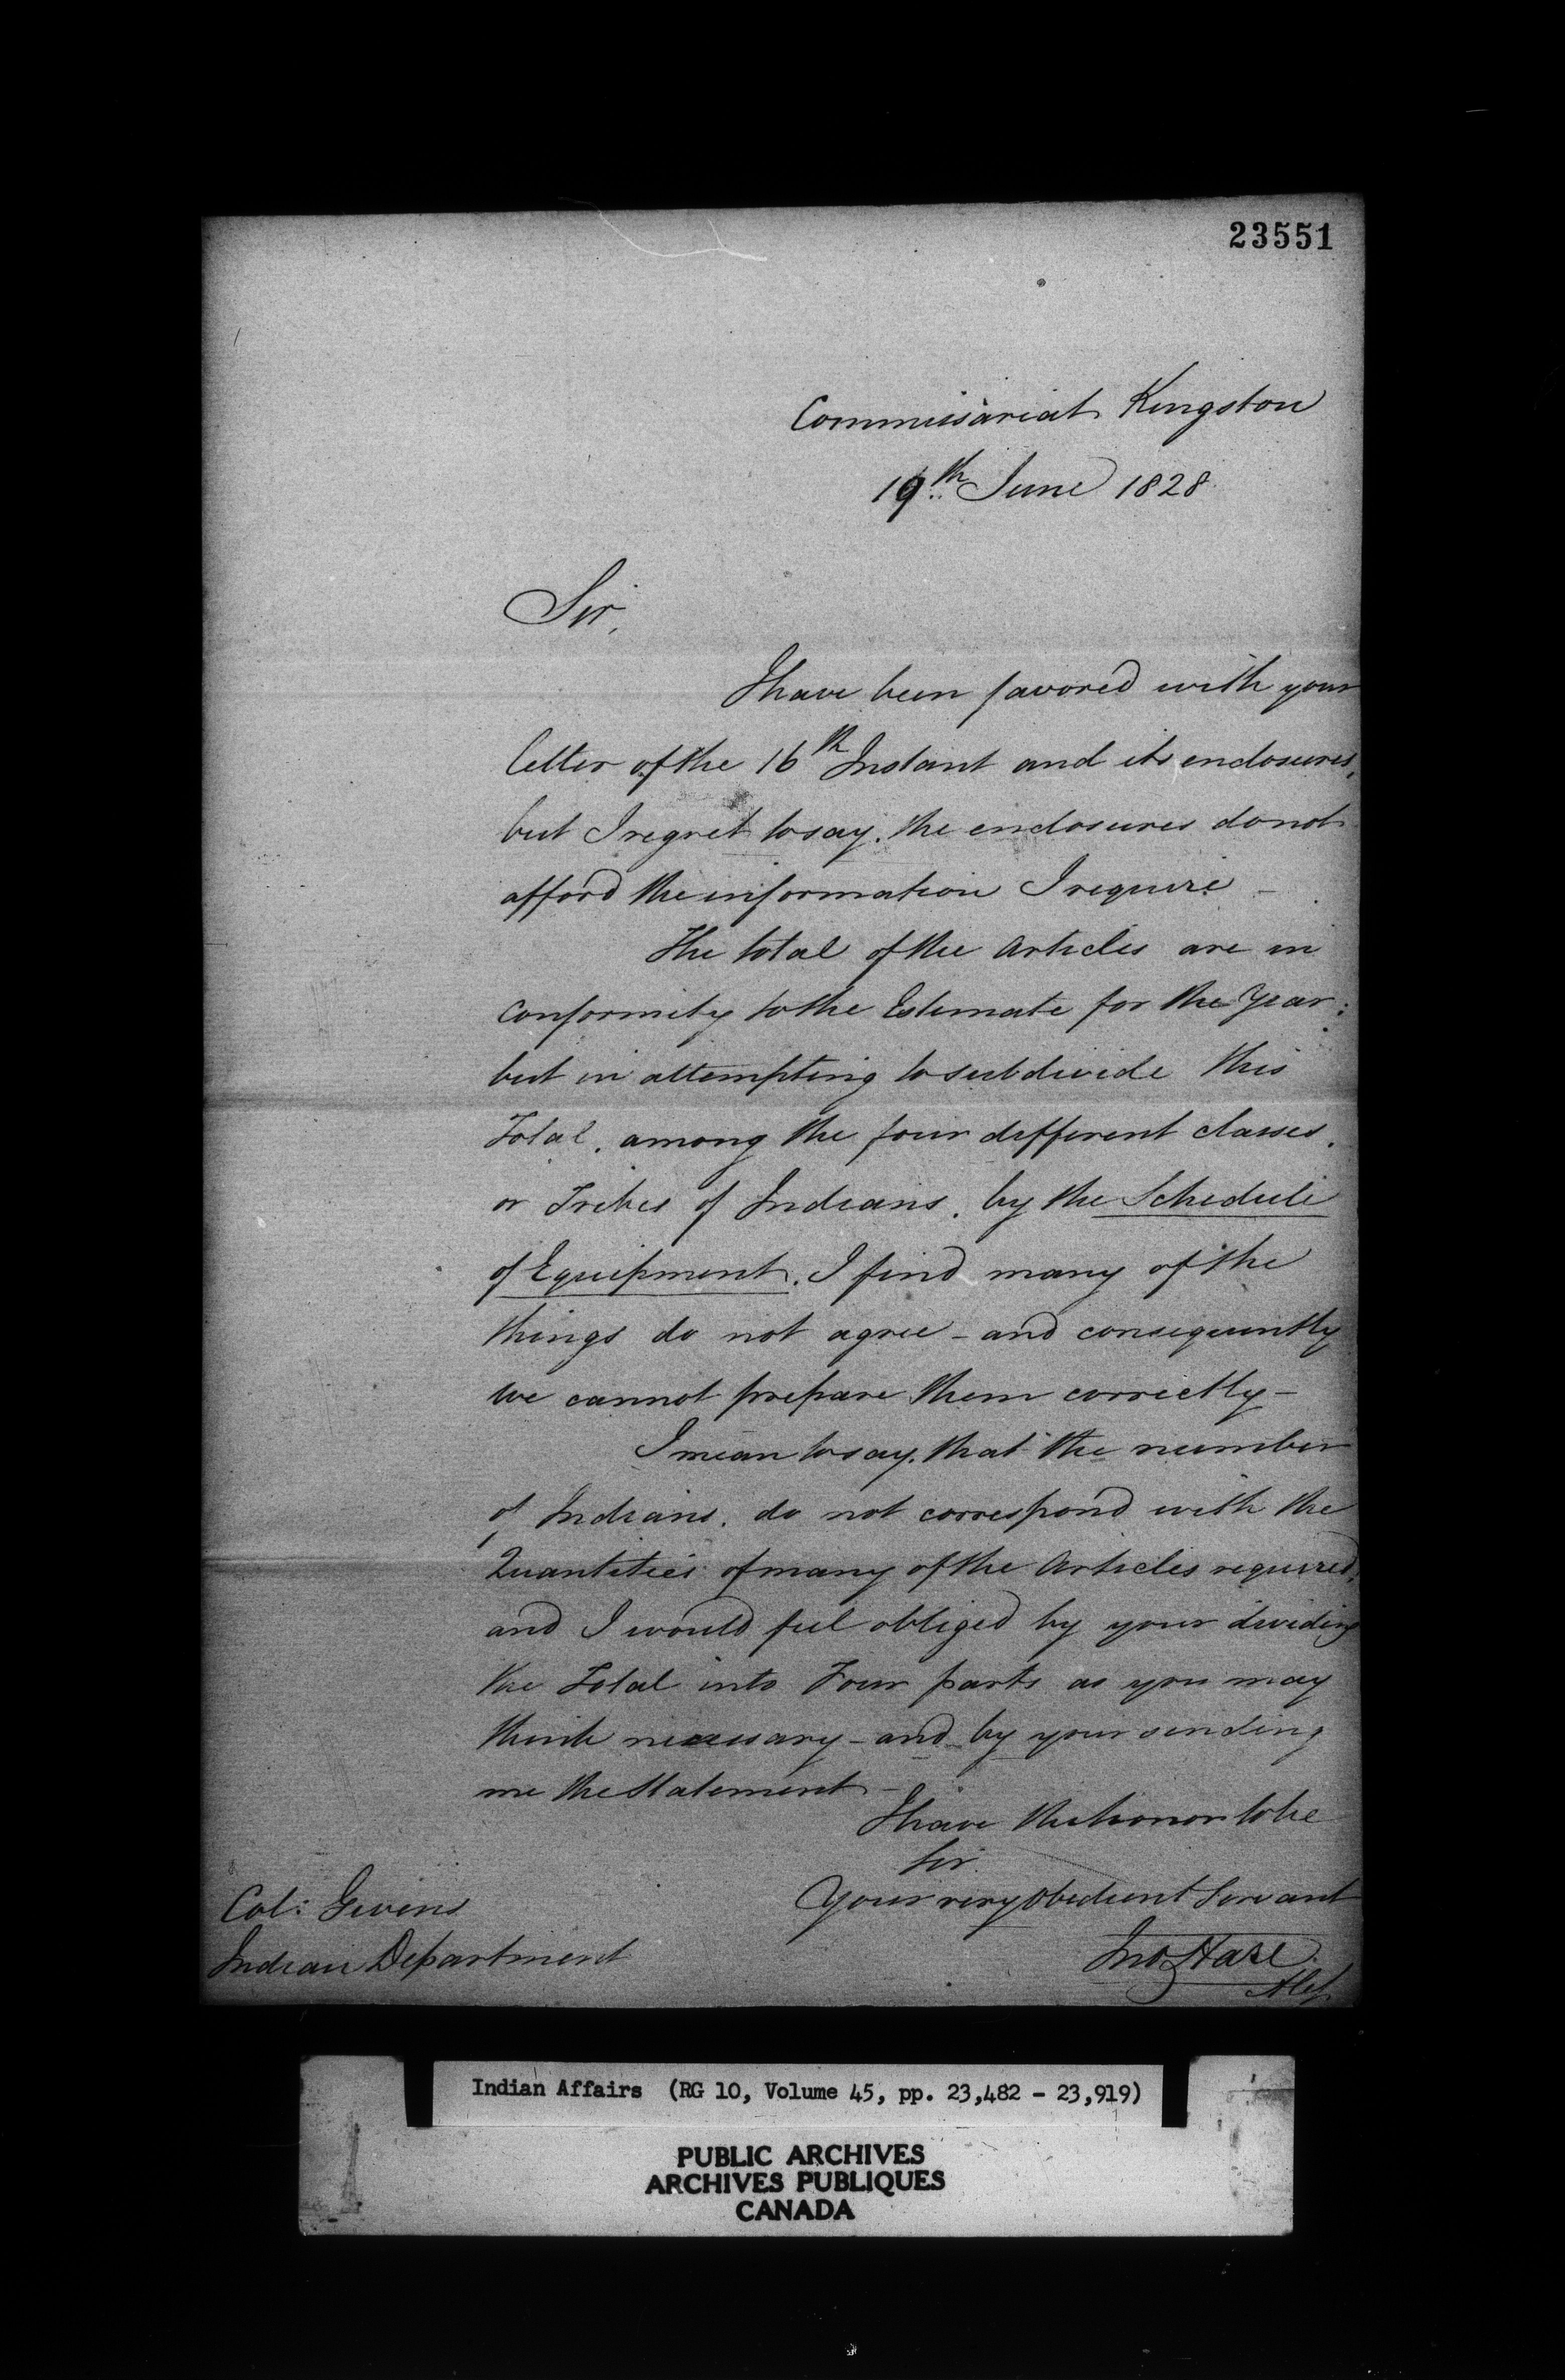 23551
Commissariat Kingston
19th June 1828
Sir,
I have been favored with your
letter of the 16th Instant and its enclosures,
but I regret to say, the enclosures do not
afford the information I require –
The total of the Articles are in
conformity to the Estimate for the Year:
but in attempting to subdivide this
Total, among the four different classes,
or Tribes of Indians, by the Schedule
of Equipment, I find many of the
things do not agree – and consequently
we cannot prepare them correctly –
I mean to say, that the number
of Indians, do not correspond with the
Quantities of many of the Articles required,
and I would feel obliged by your dividing
the Total into Four parts as you may
think necessary – and by your sending
me the Statement –
I have the honor to be
Sir
Your very obedient Servant
Jno Hare
Col: Givins
Indian Department
Indian Affairs (RG 10, Volume 45, pp. 23,482 – 23,919)
PUBLIC ARCHIVES
ARCHIVES PUBLIQUES
CANADA